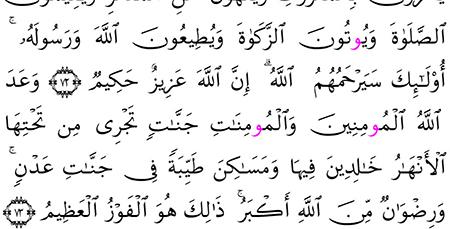 ٱلصَّلَوٰةَ وَيُوتُونَ ٱلزَّكَوٰةَ وَيُطِيعُونَ ٱللَّهَ وَرَسُولَهُۥٓ ۚ
أُوْلَٰٓئِكَ سَيَرْحَمُهُمُ ٱللَّهُ ۗ إِنَّ ٱللَّهَ عَزِيزٌ حَكِيمٌ ٧٢ وَعَدَ
ٱللَّهُ ٱلْمُومِنِينَ وَٱلْمُومِنَٰتِ جَنَّٰتٍ تَجْرِى مِن تَحْتِهَا
ٱلْأَنْهَٰرُ خَٰلِدِينَ فِيهَا وَمَسَٰكِنَ طَيِّبَةً فِى جَنَّٰتِ عَدْنٍ ۚ
وَرِضْوَٰنٌ مِّنَ ٱللَّهِ أَكْبَرُ ۚ ذَٰلِكَ هُوَ ٱلْفَوْزُ ٱلْعَظِيمُ ٧٣